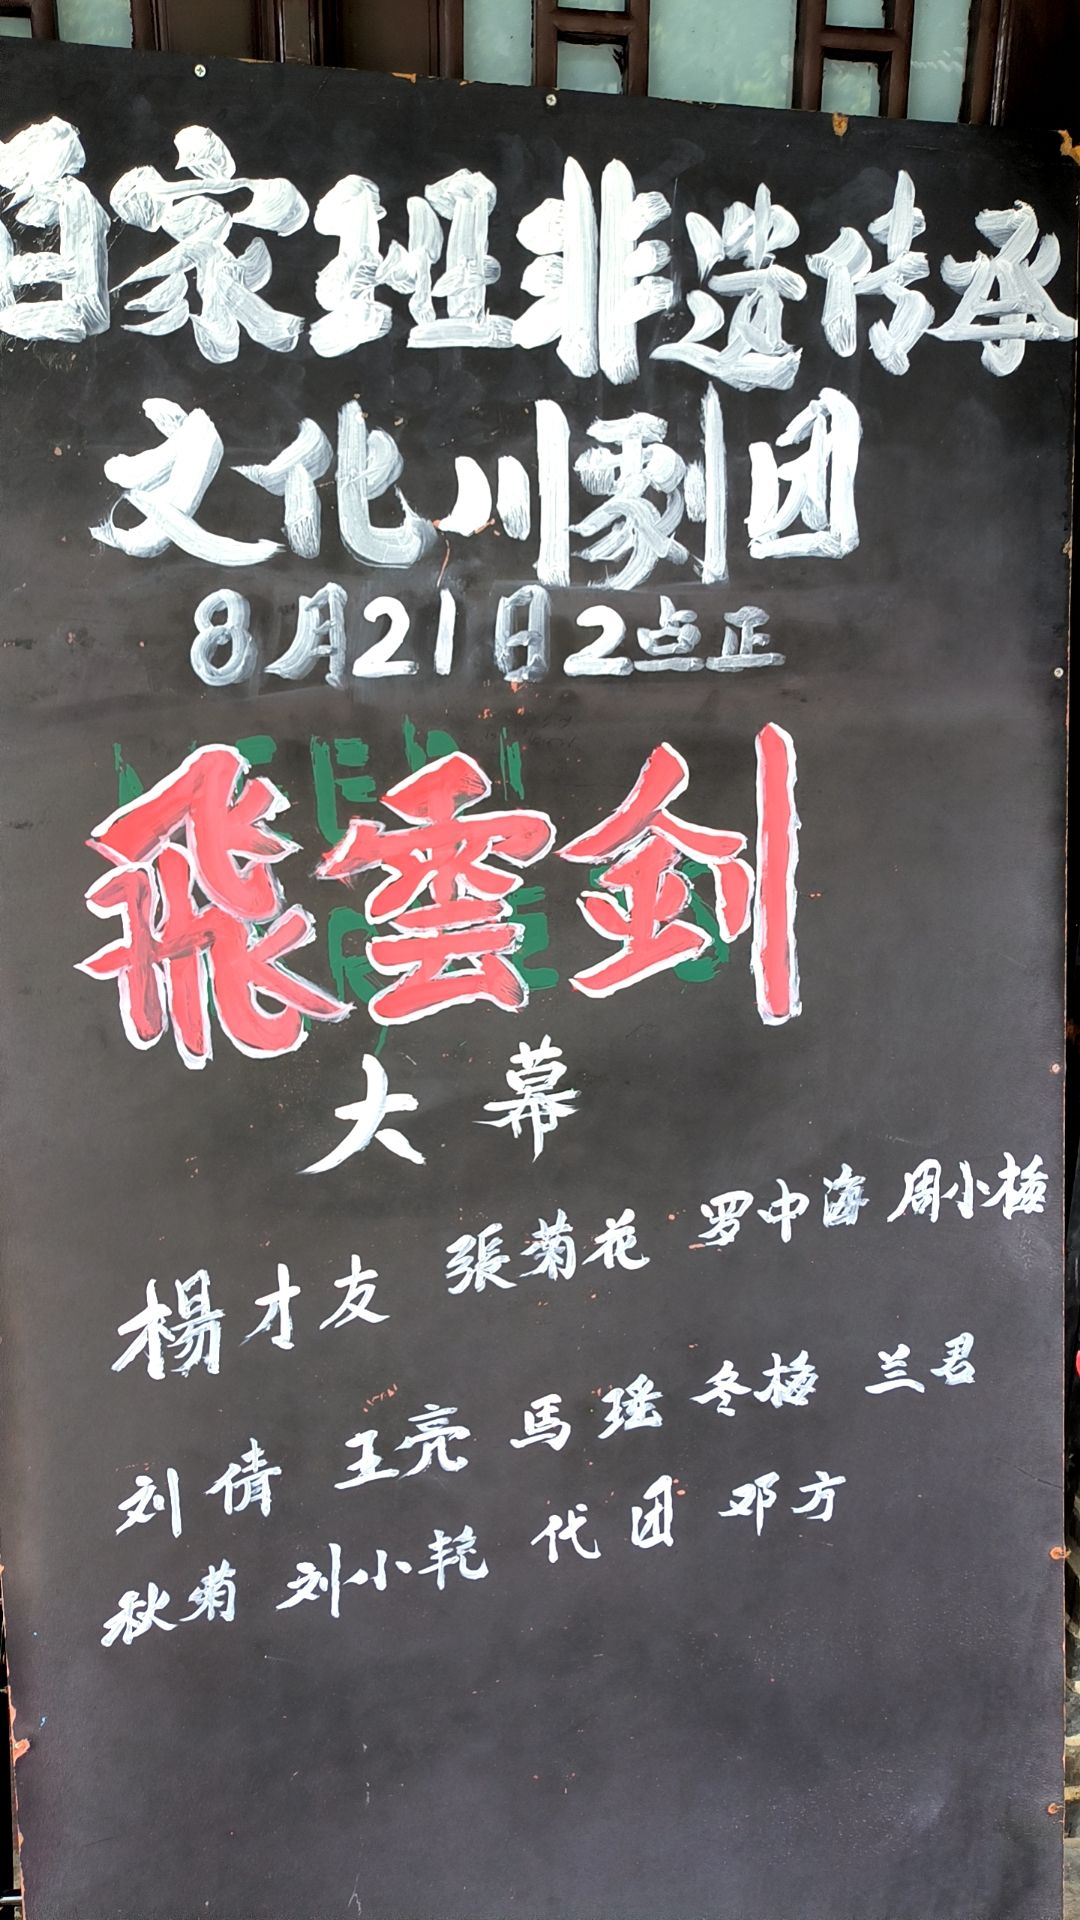 百家班非遗传承
文化川剧团
8月21日2点正
飛雲剑
大幕
楊才友 張菊花 罗中海 周小梅
刘倩 王亮 馬瑶 冬梅 兰君
秋菊 刘小艳 代团 邓方